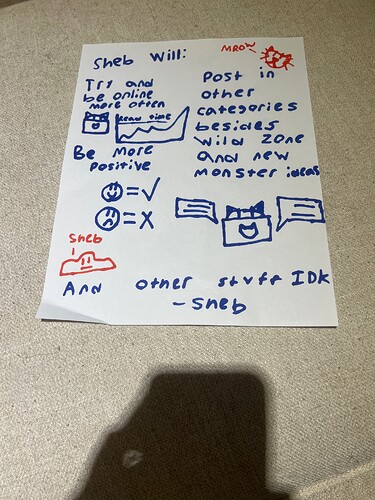 Sheb Will:
MROW
Try and
be online
more often
Read time
Be More
Positive
= ✓
= X
Post in
other
categories
besides
Wild Zone
and new
monster ideas
Sheb
And other stuff IDK
-Sheb